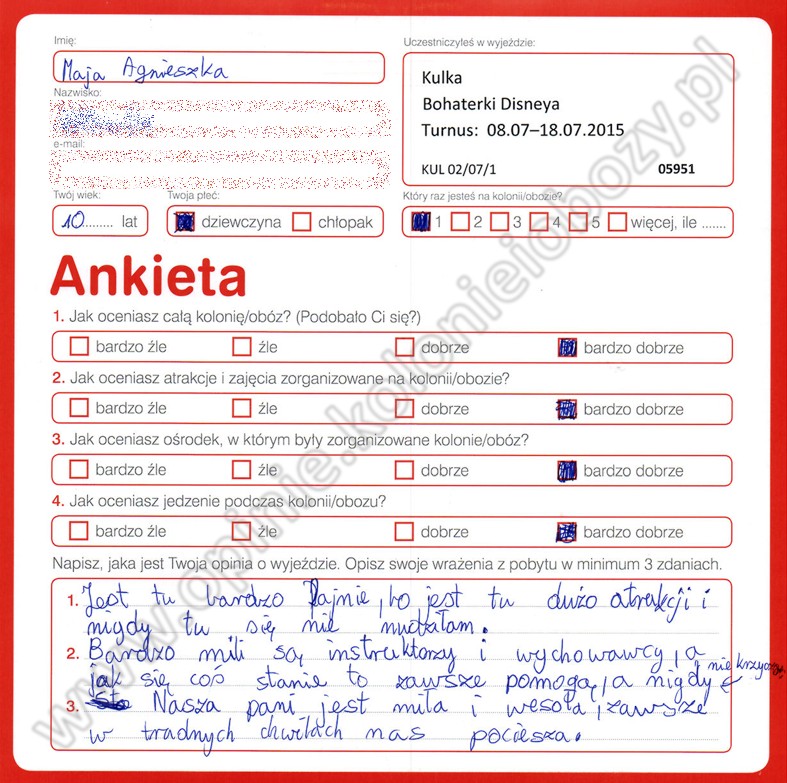 Imię:
Maja Agnieszka
Nazwisko:
e-mail:
Uczestniczyłeś w wyjeździe:
Kulka
Bohaterki Disneya
Turnus: 08.07–18.07.2015
KUL 02/07/1 05951
Twój wiek:
10........ lat
Twoja płeć:
dziewczyna chłopak
Który raz jesteś na kolonii/obozie?
1 2 3 4 5 więcej, ile .......
Ankieta
1. Jak oceniasz całą kolonię/obóz? (Podobało Ci się?)
bardzo źle źle dobrze bardzo dobrze
2. Jak oceniasz atrakcje i zajęcia zorganizowane na kolonii/obozie?
bardzo źle źle dobrze bardzo dobrze
3. Jak oceniasz ośrodek, w którym były zorganizowane kolonie/obóz?
bardzo źle źle dobrze bardzo dobrze
4. Jak oceniasz jedzenie podczas kolonii/obozu?
bardzo źle źle dobrze bardzo dobrze
Napisz, jaka jest Twoja opinia o wyjeździe. Opisz swoje wrażenia z pobytu w minimum 3 zdaniach.
1. Jest tu bardzo fajnie, bo jest tu dużo atrakcji i
nigdy tu się nie nudziłam.
2. Bardzo mili są instruktorzy i wychowawcy, a
jak się coś stanie to zawsze pomogą, a nigdy nie krzyczą.
3. Nasza pani jest miła i wesoła, zawsze
w tradnych chwilach nas pociesza.
www.opinie.kolonieiobozy.pl